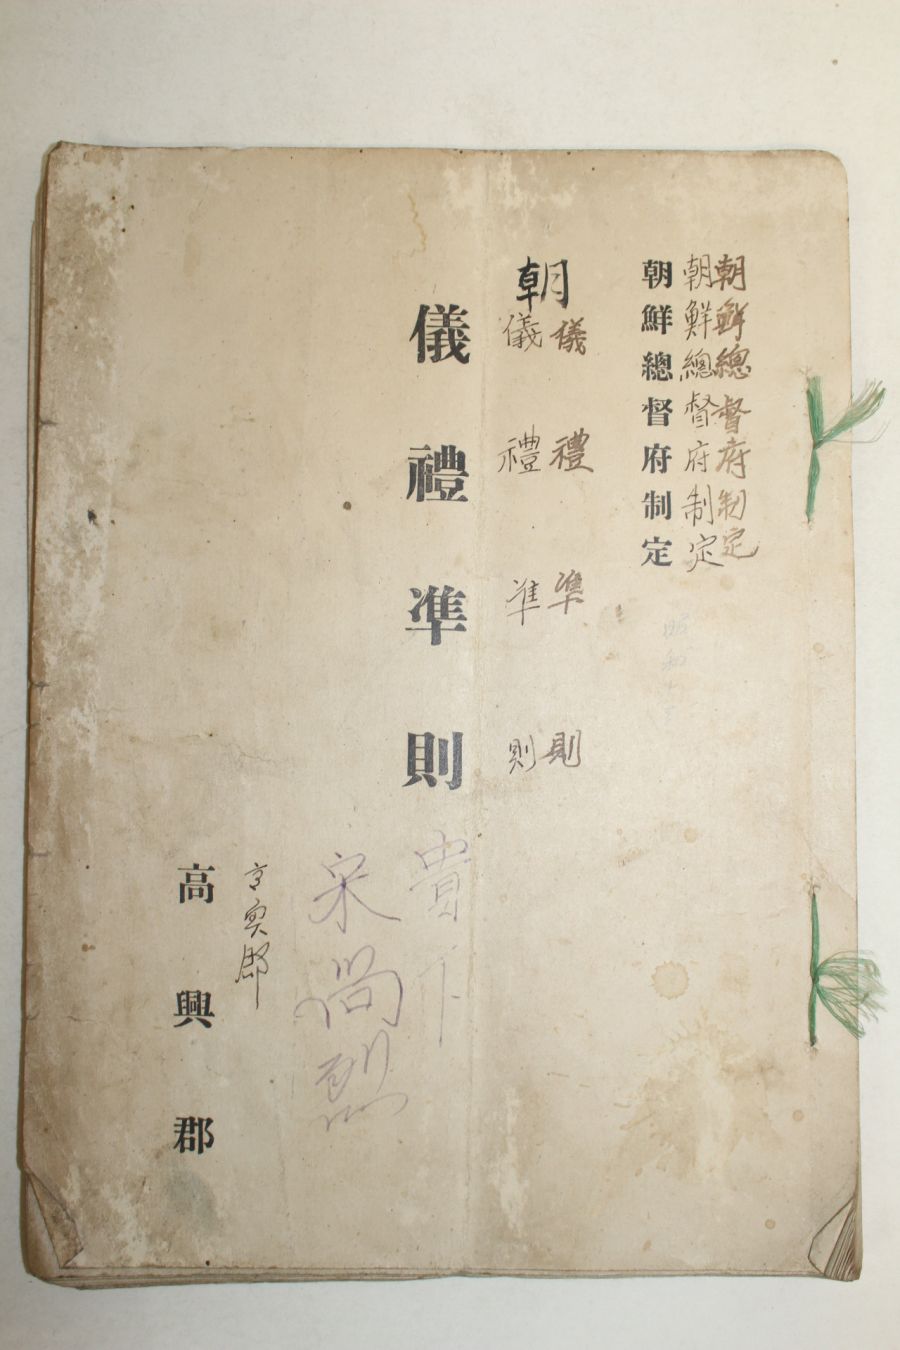 朝鮮總督府制定
朝鮮總督府制定
朝鮮總督府制定
昭和
儀禮準則
朝
儀禮準則
儀禮準則
貴下
宋尚烈
高興郡